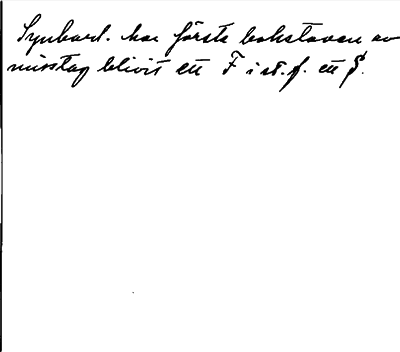 Synbarl. har första bokstaven av
misstag blivit ett F i st. f. ett